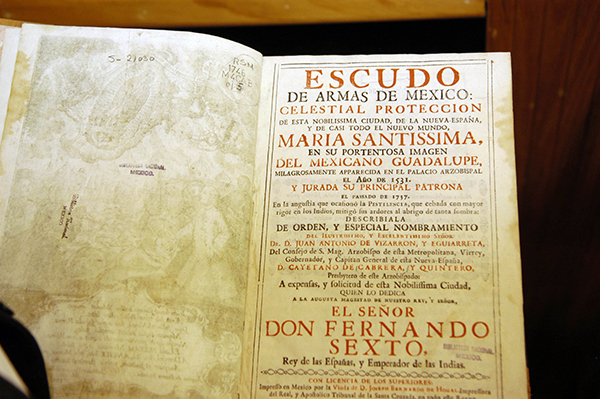 S-21050
RSM
BIBLIOTECA NACIONAL
MEXICO
ESCUDO
DE ARMAS DE MEXICO:
CELESTIAL PROTECCION
DE ESTA NOBILISSIMA CIUDAD, DE LA NUEVA-ESPAÑA,
Y DE CASI TODO EL NUEVO MUNDO,
MARIA SANTISSIMA,
EN SU PORTENTOSA IMAGEN
DEL MEXICANO GUADALUPE,
MILAGROSAMENTE APPARECIDA EN EL PALACIO ARZOBISPAL
EL AÑO DE 1531.
Y JURADA SU PRINCIPAL PATRONA
EL PASSADO DE 1737.
En la angustia que ocasionò la PESTILENCIA, que cebada con mayor
rigor en los Indios, mitigò sus ardores al abrigo de tanta sombra:
DESCRIBIALA
DE ORDEN, Y ESPECIAL NOMBRAMIENTO
DEL ILUSTRISSIMO, Y EXCELENTISSIMO SEÑOR
Dr. D. JUAN ANTONIO DE VIZARRON, Y EGUIARRETA,
Del Consejo de S. Mag. Arzobispo de esta Metropolitana, Virrey,
Governador, y Capitan General de esta Nueva-España,
D. CAYETANO DE CABRERA, Y QUINTERO,
Presbytero de este Arzobispado:
A expensas, y solicitud de esta Nobilissima Ciudad,
QUIEN LO DEDICA
A LA AUGUSTA MAGESTAD DE NUESTRO REY, Y SEÑOR,
EL SEÑOR
DON FERNANDO
SEXTO,
BIBLIOTECA NACIONAL
MEXICO
Rey de las Españas, y Emperador de las Indias.
CON LICENCIA DE LOS SUPERIORES:
Impresso en Mexico por la Viuda de D. JOSEPH BERNARDO DE HOGAL, Impressora
del Real, y Apostolico Tribunal de la Santa Cruzada, en todo este Reyno.